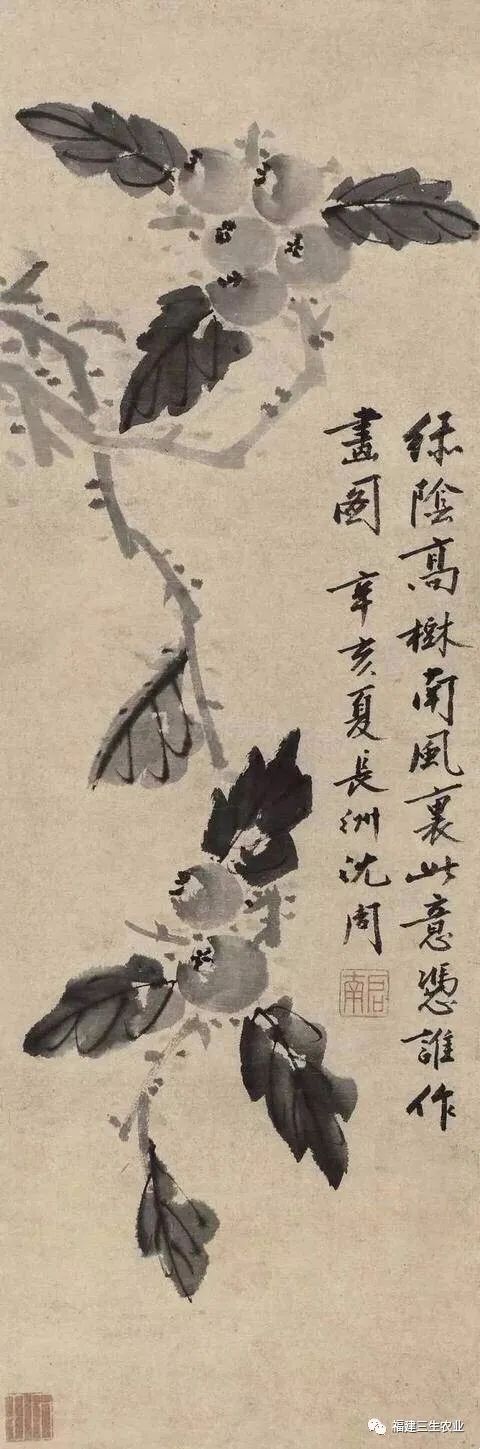 緑陰高樹南風裏此意憑誰作
畫圖 辛亥夏長洲沈周
启南
福建三生农业